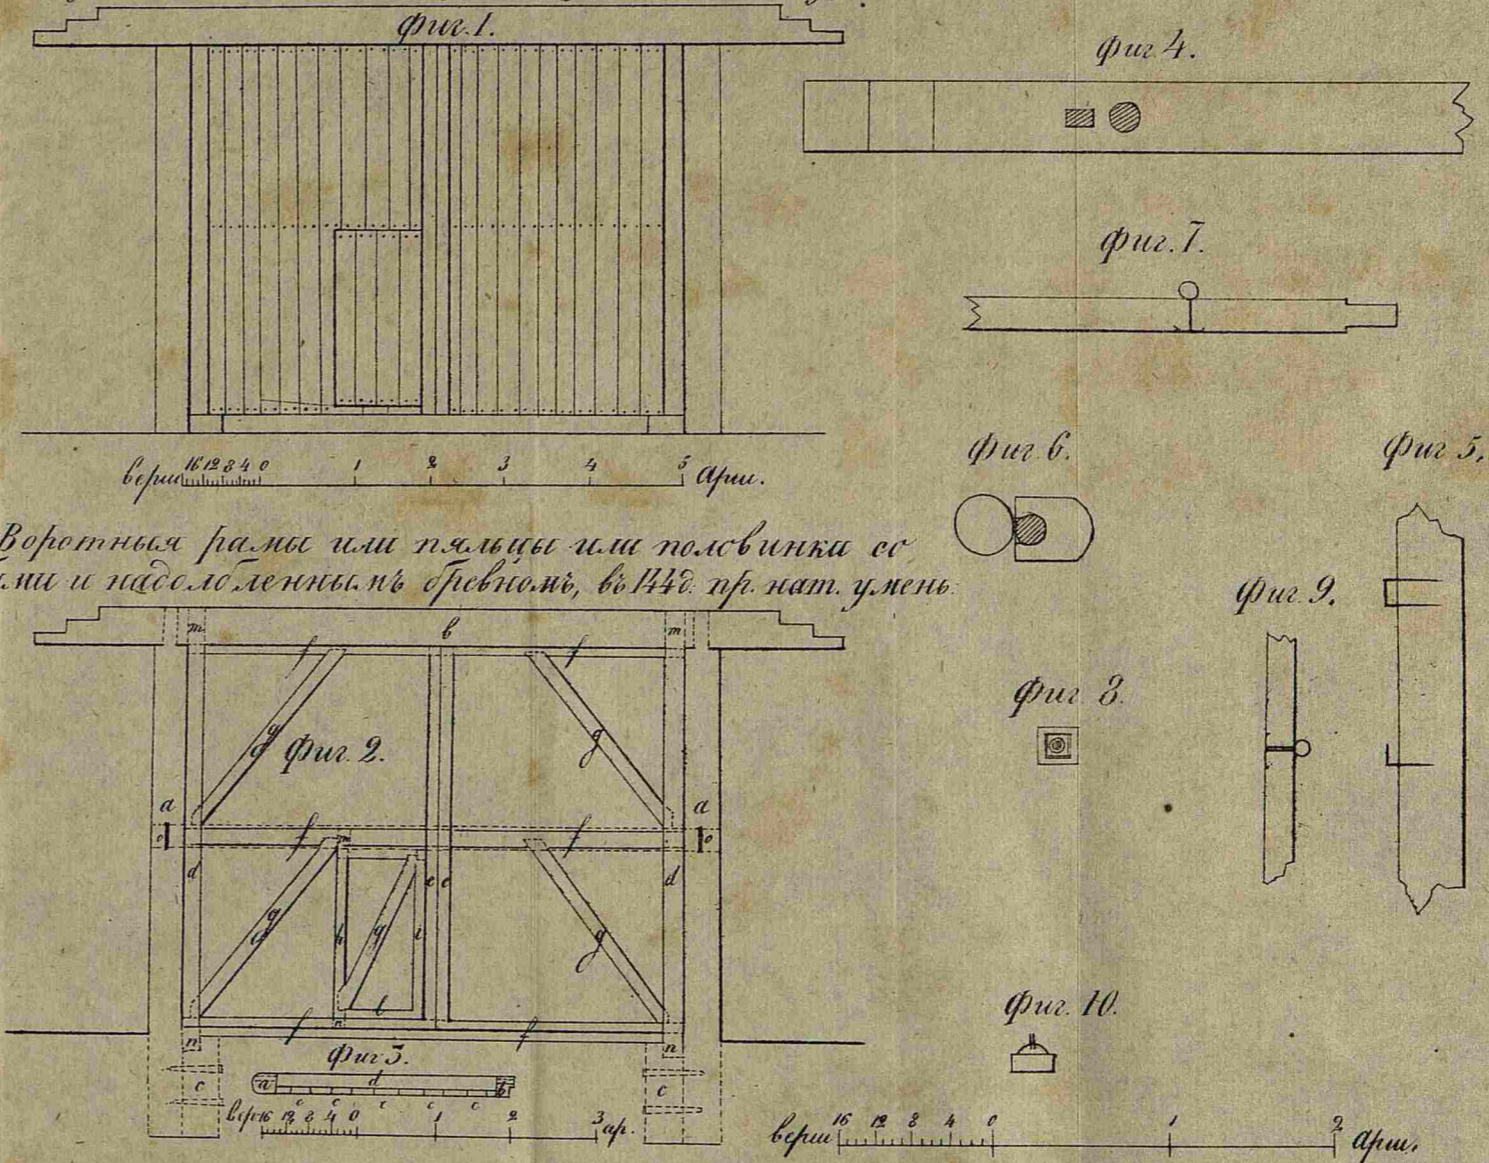 Фиг. 1.
верш. 16 12 8 4 0 1 2 3 4 5 Арш.
Воротныя рамы или пяльцы или половинки со
ми и надолбленнымъ бревномъ, въ 144 д. пр. нат. умень.
m b m
f f
g g
Фиг. 2.
a a
o f f o
d m e e d
g h g i g
l
n f n f n
c c
Фиг 3.
a d b
c c c c c
верш 16 12 8 4 0 1 2 3 ар.
Фиг 4.
Фиг. 7.
Фиг. 6.
Фиг 5.
Фиг. 9.
Фиг 8.
Фиг. 10.
верш 16 12 8 4 0 1 2 арш.